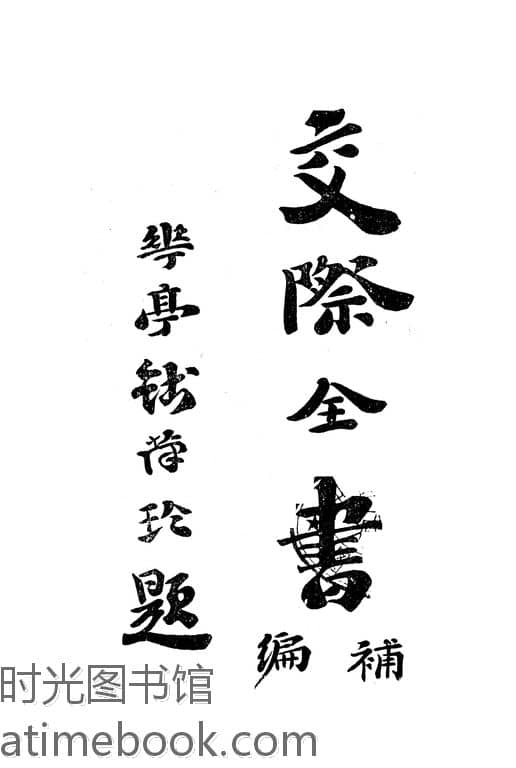 交際全書
補編
華亭錢蓀玲題
时光图书馆
atimebook.com